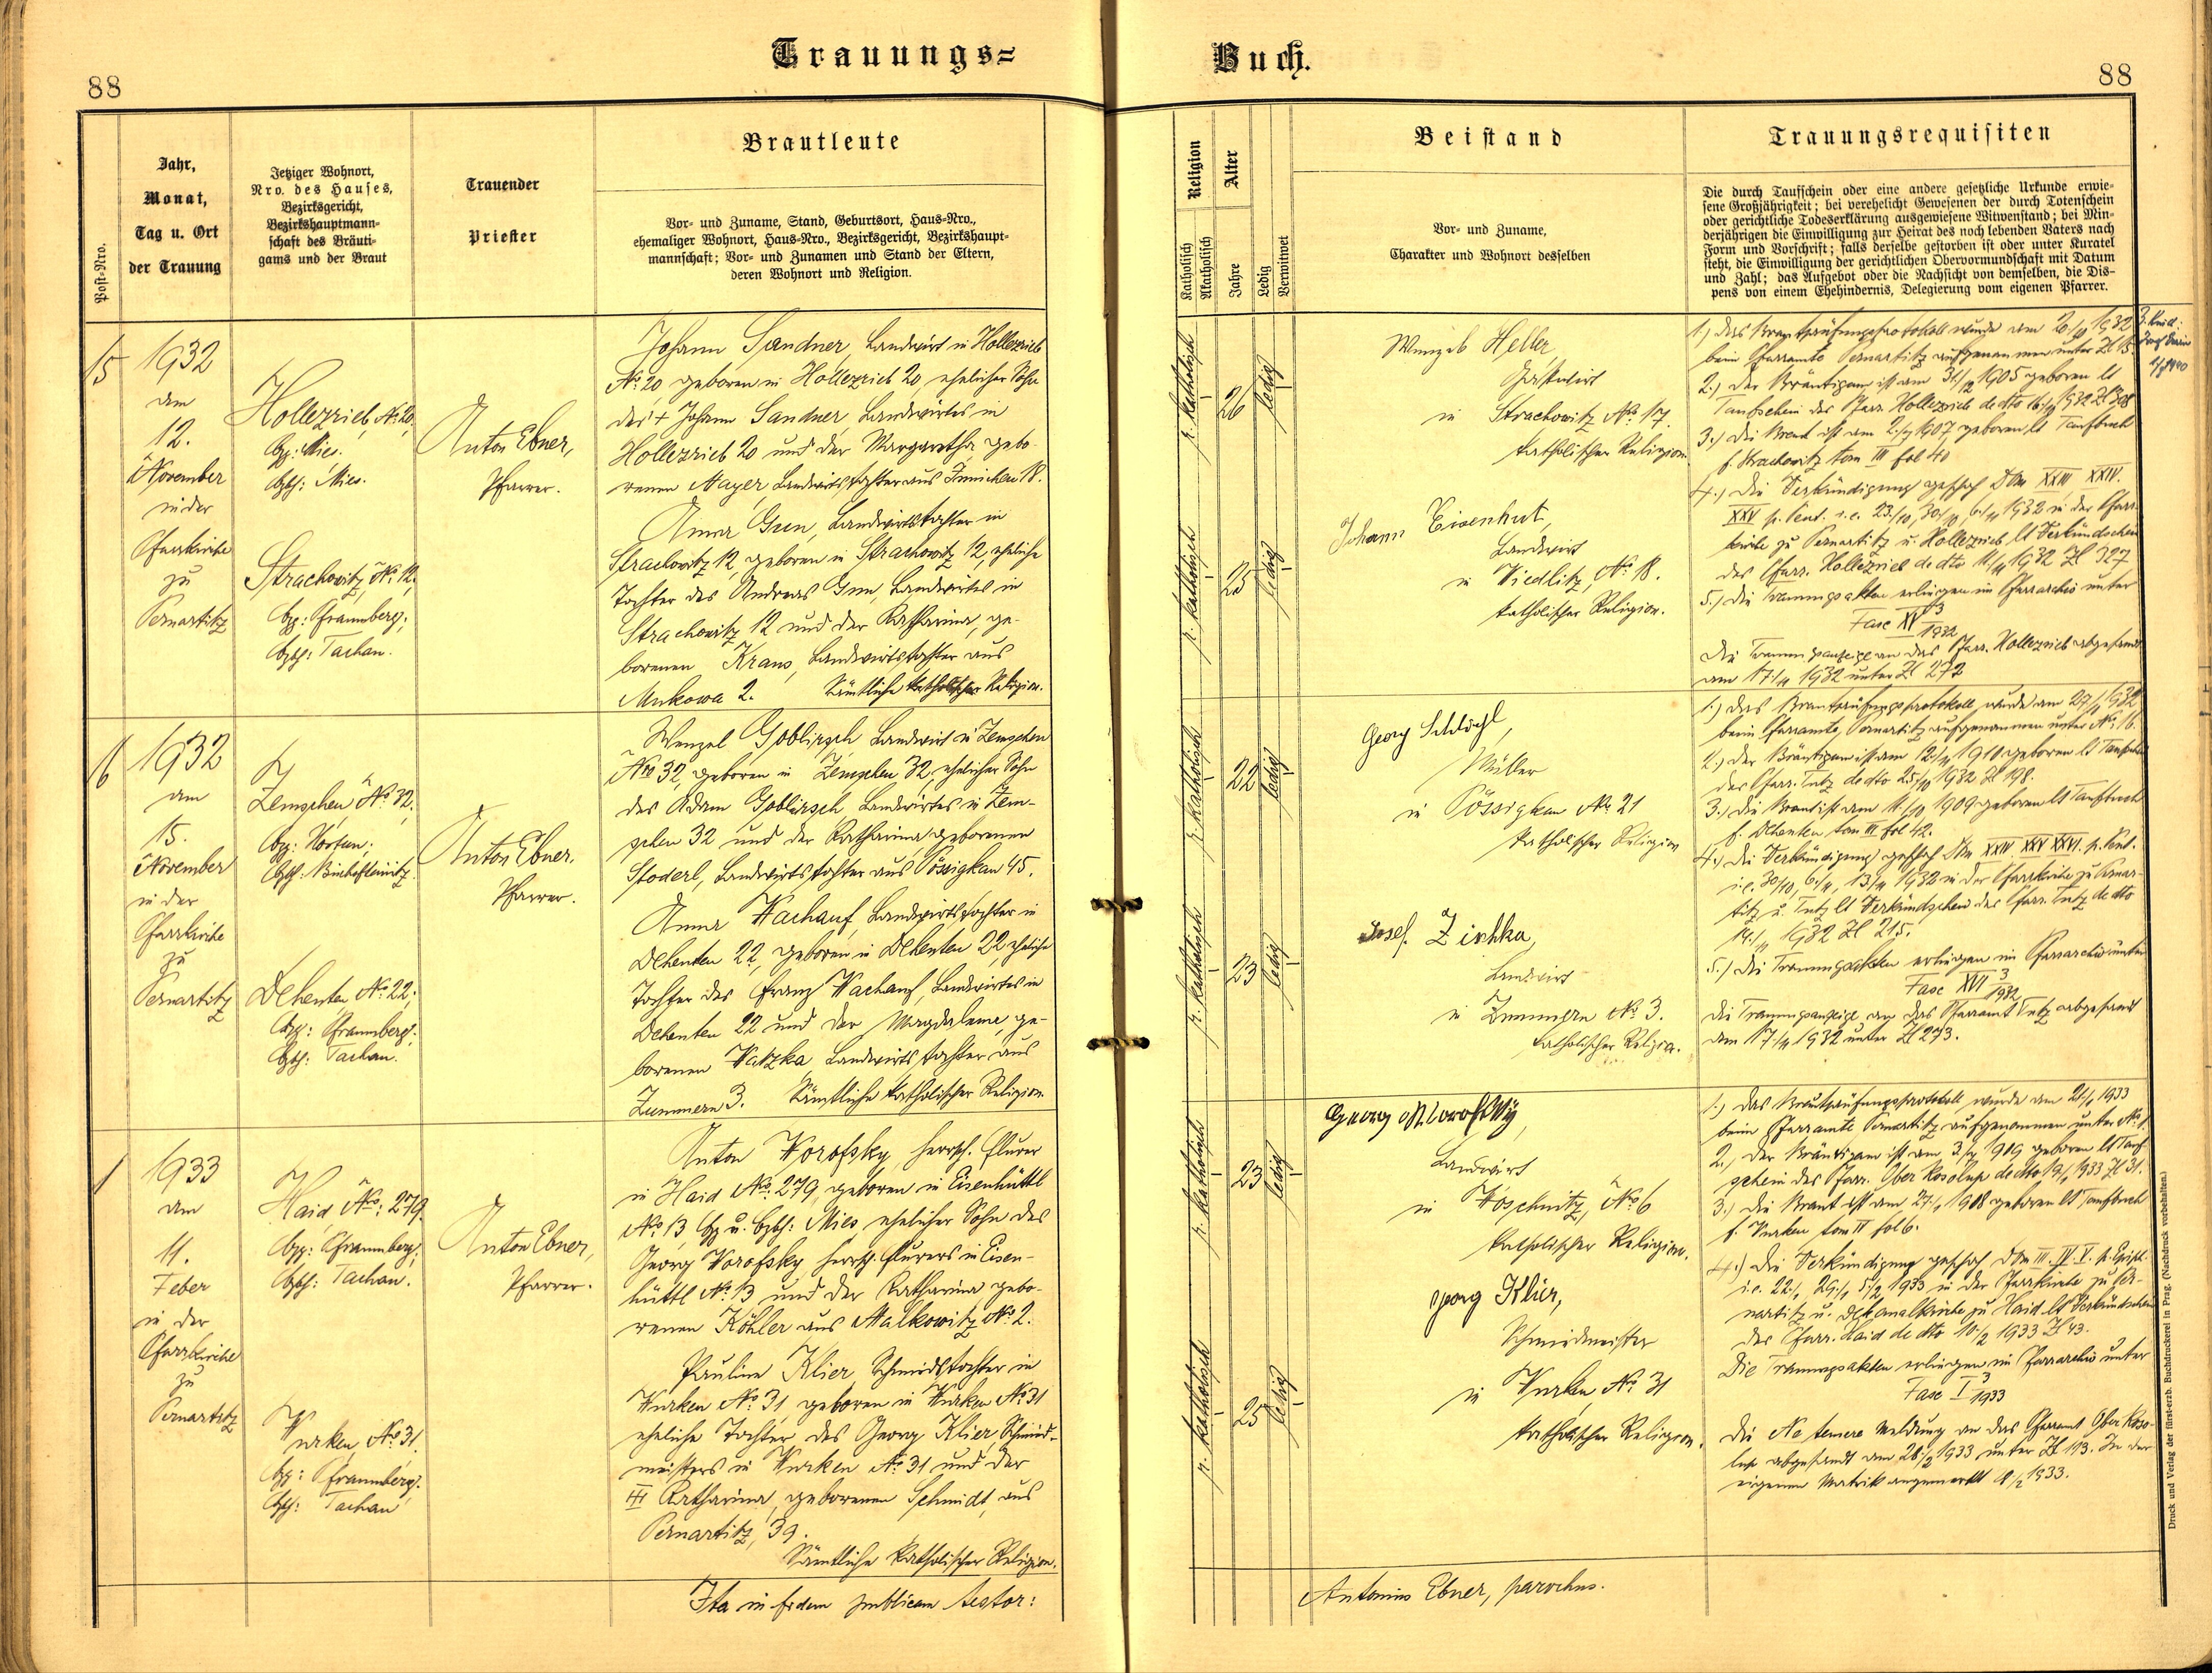 Trauungs=
Buch.
88
88
Post-Nro.
Jahr,
Monat,
Tag u. Ort
der Trauung
Jetziger Wohnort,
Nro. des Hauses,
Bezirksgericht,
Bezirkshauptmann-
schaft des Bräuti-
gams und der Braut
Trauender
Priester
Brautleute
Vor- und Zuname, Stand, Geburtsort, Haus-Nro.,
ehemaliger Wohnort, Haus-Nro., Bezirksgericht, Bezirkshaupt-
mannschaft; Vor- und Zunamen und Stand der Eltern,
deren Wohnort und Religion.
Religion
Katholisch
Akatholisch
Alter
Jahre
Ledig
Verwitwet
Beistand
Vor- und Zuname,
Charakter und Wohnort desselben
Trauungsrequisiten
Die durch Taufschein oder eine andere gesetzliche Urkunde erwie-
sene Großjährigkeit; bei verehelicht Gewesenen der durch Totenschein
oder gerichtliche Todeserklärung ausgewiesene Witwenstand; bei Min-
derjährigen die Einwilligung zur Heirat des noch lebenden Vaters nach
Form und Vorschrift; falls derselbe gestorben ist oder unter Kuratel
steht, die Einwilligung der gerichtlichen Obervormundschaft mit Datum
und Zahl; das Aufgebot oder die Nachsicht von demselben, die Dis-
pens von einem Ehehindernis, Delegierung vom eigenen Pfarrer.
15
1932
am
12.
November
in der
Pfarrkirche
zu
Pernartitz
Hollezrieb, No: 20,
Bzg: Mies.
Bzhsch: Mies.
Strachowitz, No: 12,
Bzg: Pfraumberg;
Bzhsch: Tachau.
Anton Ebner,
Pfarrer.
Johann Sandner, Landwirt in Hollezrieb
No 20 geboren in Hollezrieb 20 ehelicher Sohn
des + Johann Sandner, Landwirtes in
Hollezrieb 20 und der Margaretha gebo-
renen Mayer, Landwirtstochter aus Innichen 18.
Anna Gun, Landwirtstochter in
Strachowitz 12, geboren in Strachowitz 12, eheliche
Tochter des Andreas Gun, Landwirtes in
Strachowitz 12 und der Katharina, ge-
borenen Kraus, Landwirtstochter aus
Mukowa 2. Sämtliche katholischer Religion.
r. katholisch
26
ledig
r. katholisch
25
ledig
Wenzel Heller
Gastwirt
in Strachowitz No 17.
katholischer Religion.
Johann Eisenhut,
Landwirt
in Wiedlitz, No 18.
katholischer Religion.
1.) Das Brautprüfungsprotokoll wurde am 20/10 1932
beim Pfarramte Pernartitz aufgenommen unter Zl 15.
2.) Der Bräutigam ist am 31/12 1905 geboren lt
Taufschein des Pfarr. Hollezrieb de dto 16/10 1932 Zl 308
3.) Die Braut ist am 2/7 1907 geboren, lt Taufbuch
f. Strachowitz tom III fol 40
4.) Die Verkündigung geschah Dom XXIII XXIV.
XXV p. Pent. i.e. 23/10, 30/10, 6/11 1932 in der Pfarr-
kirche zu Pernartitz u. Hollezrieb lt Verkündschein
des Pfarr. Hollezrieb de dto 11/11 1932 Zl 327
5.) Die Trauungsakten erliegen im Pfarrarchiv unter
Fasc XV 3/1932
Die Trauungsanzeige an das Pfarr. Hollezrieb abgesandt
am 17/11 1932 unter Zl 272
16
1932
am
15.
November
in der
Pfarrkirche
zu
Pernartitz
Zemschen No 32,
Bzg: Hostau;
Bzhsch: Bischofteinitz.
Dehenten No 22;
Bzg: Pfraumberg;
Bzhsch: Tachau.
Anton Ebner.
Pfarrer.
Wenzel Goblirsch Landwirt in Zemschen
No 32, geboren in Zemschen 32, ehelicher Sohn
des Adam Goblirsch Landwirtes in Zem-
schen 32 und der Katharina geborenen
Stoderl, Landwirtstochter aus Pössigkau 45.
Anna Wachauf, Landwirtstochter in
Dehenten 22, geboren in Dehenten 22 eheliche
Tochter des Franz Wachauf, Landwirtes in
Dehenten 22 und der Magdalena, ge-
borenen Watzka Landwirtstochter aus
Zummern 3. Sämtliche katholischer Religion.
r. katholisch
22
ledig
r. katholisch
23
ledig
Georg Schlögl,
Müller
in Pössigkau No 21
katholischer Religion
Josef Zischka,
Landwirt
in Zummern No 3.
katholischer Religion.
1.) Das Brautprüfungsprotokoll wurde am 27/10 1932
beim Pfarramte, Pernartitz aufgenommen unter No 16.
2.) Der Bräutigam ist am 12/4 1910 geboren lt Taufschein
des Pfarr. Tutz de dto 25/10 1932 Zl 198.
3.) Die Braut ist am 11/10 1909 geboren lt Taufbuch
f. Dehenten tom III fol 42.
4.) Die Verkündigung geschah Dom XXIV XXV XXVI p. Pent.
i.e. 30/10, 6/11, 13/11 1932 in der Pfarrkirche zu Pernar-
titz u. Tutz lt Verkündschein des Pfarr. Tutz de dto
14/11 1932 Zl 215.
5.) Die Trauungsakten erliegen im Pfarrarchiv unter
Fasc XVI 3/1932
Die Trauungsanzeige an das Pfarramt Tutz abgesandt
am 17/11 1932 unter Zl 273.
1
1933
am
11.
Feber
in der
Pfarrkirche
zu
Pernartitz
Haid, No: 279.
Bzg: Pfraumberg;
Bzhsch: Tachau.
Wurken, No 31.
Bzg: Pfraumberg;
Bzhsch: Tachau
Anton Ebner,
Pfarrer.
Anton Worofsky, herrsch. Flurer
in Haid No: 279, geboren in Eisenhüttl
No 13 Bzg u. Bzhsch: Mies, ehelicher Sohn des
Georg Worofsky, herrsch. Flurers in Eisen-
hüttl No 13 und der Katharina gebo-
renen Köhler aus Malkowitz No 2.
Pauline Klier, Schmidstochter in
Wurken No 31, geboren in Wurken No 31
eheliche Tochter des Georg Klier Schmied-
meisters in Wurken No 31 und der
Katharina, geborenen Schmidt, aus
Pernartitz, 39.
Sämtliche katholischer Religion.
r. katholisch
23
ledig
r. katholisch
25
ledig
Georg Worofsky,
Landwirt
in Wöschnitz, No 6
katholischer Religion.
Georg Klier,
Schmiedmeister
in Wurken, No 31
katholischer Religion.
1.) Das Brautprüfungsprotokoll wurde am 21/1 1933
beim Pfarramte Pernartitz aufgenommen unter No 1.
geboren lt Tauf-
schein des Pfarr. Ober Kosolup de dto 19/1 1933 Zl 31.
3.) Die Braut ist am 27/1 1908 geboren lt Taufbuch
f. Wurken tom II fol 6.
4.) Die Verkündigung geschah Dom III. IV. V. p. Epiph.
i.e. 22/1, 29/1, 5/2 1933 in der Pfarrkirche zu Per-
nartitz u. Dekanalkirche zu Haid lt Verkündschein
des Pfarr. Haid de dto 10/2 1933 Zl 43.
Die Trauungsakten erliegen im Pfarrarchiv unter
Fasc I 3/1933
Die Ne temere Meldung an das Pfarramt Ober Koso-
lup abgesandt am 28/2 1933 unter Zl 113. In der
eigenen Matrik angemerkt 1933.
Ita in fidem publicam testor:
Antonius Ebner, parochus.
Druck und Verlag der fürst-erzb. Buchdruckerei in Prag. (Nachdruck vorbehalten.)